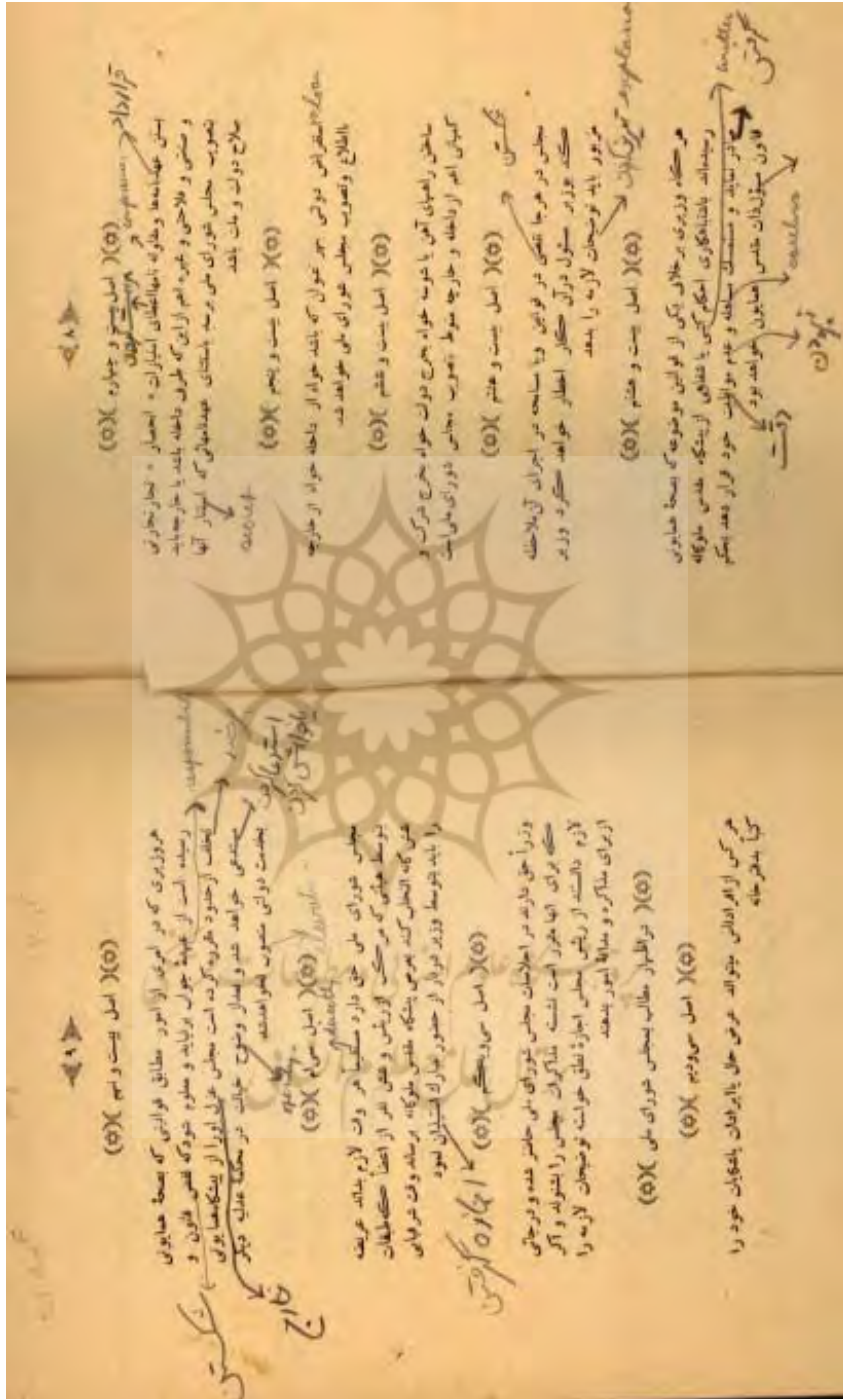 ﴿ ٨ ﴾
(✡)( اصل بیست و چهارم )(✡)
بستن عهدنامه‌ها و مقاوله نامها اعطای امتیازات « انحصار » تجارتی
و صنعتی و فلاحتی و غیره اعم از این که طرف داخله باشد یا خارجه باید
بتصویب مجلس شورای ملی برسد باستثنای عهدنامهائی که استتار آنها
صلاح دولت و ملت باشد
قرارداد
secret
(✡)( اصل بیست و پنجم )(✡)
استقراض دولتی بهر عنوان که باشد خواه از داخله خواه از خارجه
بااطلاع و تصویب مجلس شورای ملی خواهد شد
(✡)( اصل بیست و ششم )(✡)
ساختن راههای آهن یا شوسه خواه بخرج دولت خواه بخرج شرکت و
کمپانی اعم از داخله و خارجه منوط بتصویب مجلس شورای ملی است
(✡)( اصل بیست و هفتم )(✡)
مجلس در هرجا نقضی در قوانین و یا مسامحه در اجرای آن ملاحظه
کند بوزیر مسئول در آن کار اخطار خواهد کرد وزیر
مزبور باید توضیحات لازمه را بدهد
شکستن
(✡)( اصل بیست و هشتم )(✡)
هرگاه وزیری برخلاف یکی از قوانین موضوعه که بصحهٔ همایونی
رسیده‌اند باشتباه‌کاری احکام کتبی یا شفاهی از پیشگاه مقدس ملوکانه
صادر نماید و مستمسک مساهله و عدم مواظبت خود قرار دهد بحکم
قانون مسئول ذات مقدس همایون خواهد بود
گرفتن
careless
دقت
نبودن
﴿ ٩ ﴾
(✡)( اصل بیست و نهم )(✡)
هر وزیری که در امری از امور مطابق قوانینی که بصحهٔ همایونی
رسیده است از عهدهٔ جواب برنیاید و معلوم شود که نقض قانون و
تخلف از حدود مقرره کرده است مجلس عزل او را از پیشگاه همایونی
مستدعی خواهد شد و بعد از وضوح خیانت در محکمهٔ عدلیه دیگر
بخدمت دولتی منصوب نخواهد شد
شکستن
خارج
استدعا کردن
یا خواهش کردن
(✡)( اصل سی‌ام )(✡)
directly
مجلس شورای ملی حق دارد مستقیماً هر وقت لازم بداند عریضه
بتوسط هیئتی که مرکب از رئیس و شش نفر از اعضا که طبقات
شش گانه انتخاب کنند بعرض پیشگاه مقدس ملوکانه برساند وقت شرفیابی
را باید بتوسط وزیر دربار از حضور مبارک استیذان نمود
اجازه گرفتن
(✡)( اصل سی و یکم )(✡)
وزرا حق دارند در اجلاسات مجلس شورای ملی حاضر شده و درجائی
که برای آنها مقرر است نشسته مذاکرات مجلس را بشنوند و اگر
لازم دانستند از رئیس مجلس اجازهٔ نطق خواسته توضیحات لازمه را
ازبرای مذاکره و مداقهٔ امور بدهند
(✡)( در اظهار مطالب بمجلس شورای ملی )(✡)
(✡)( اصل سی و دویم )(✡)
هر کس از افراد ناس میتواند عرض حال یا ایرادات یا شکایات خود را
کتباً بدفترخانه